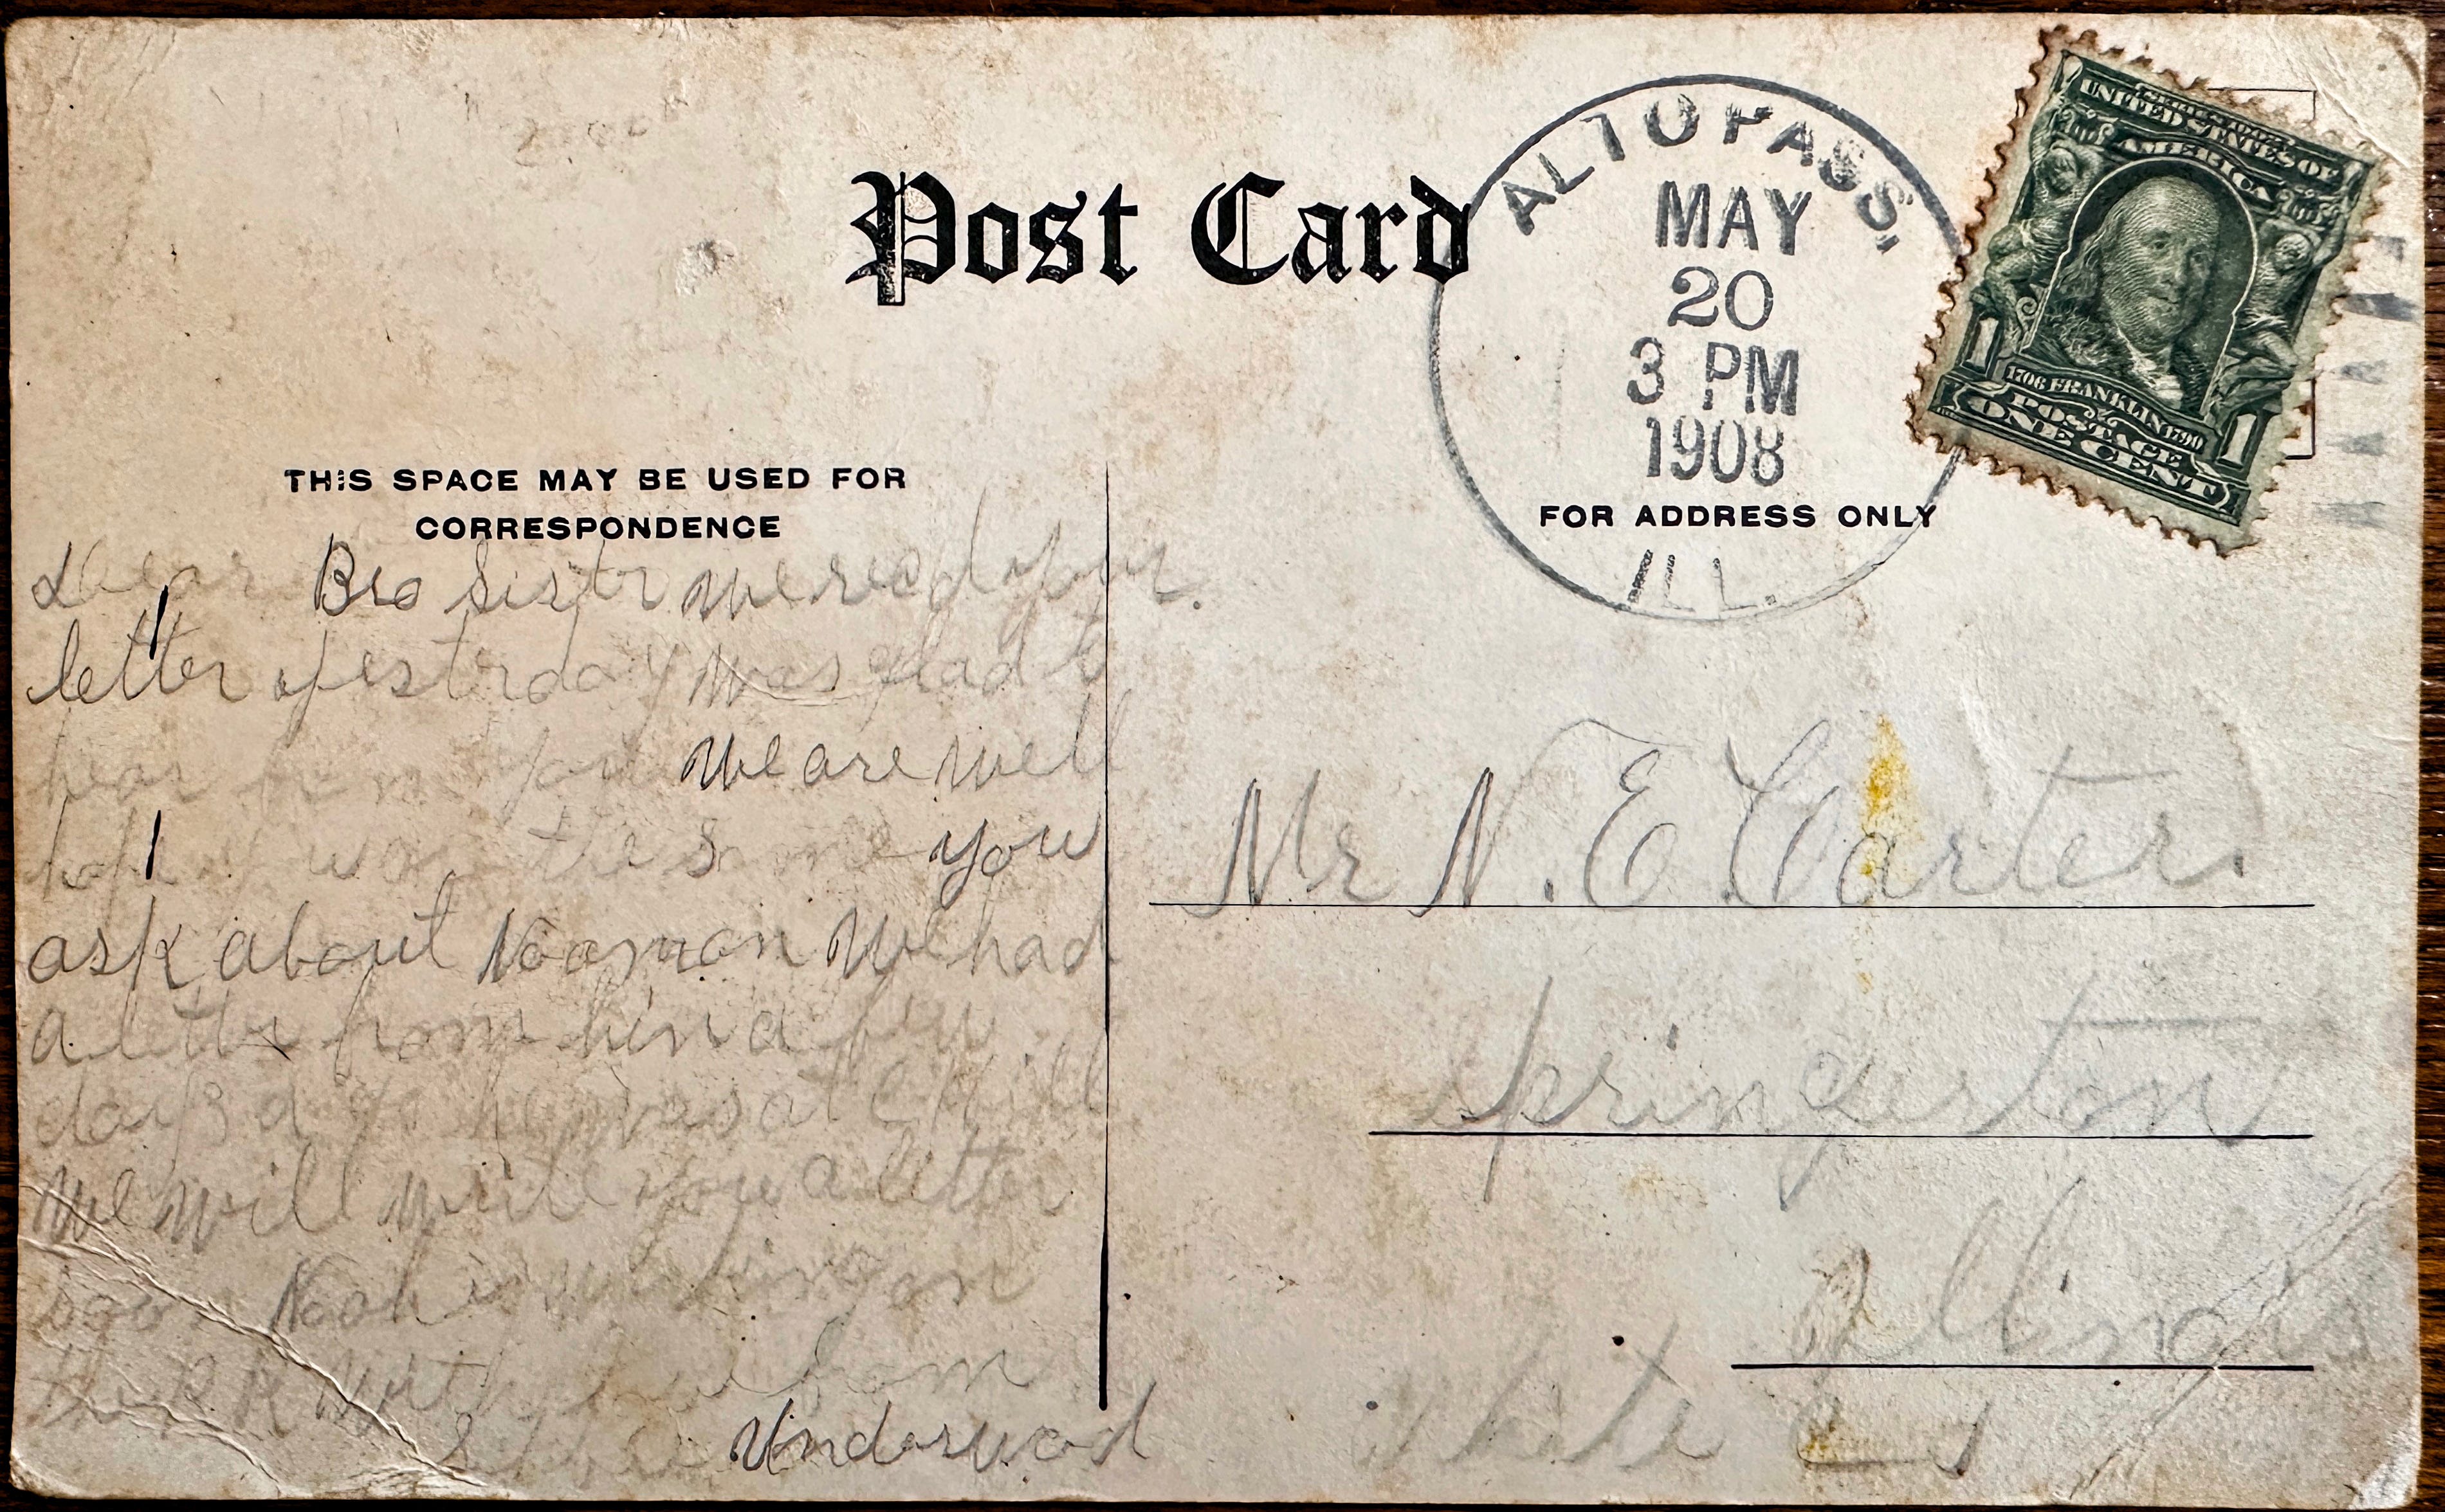 Post Card
ALTO PASS,
MAY
20
3 PM
1908
ILL.
UNITED STATES OF
AMERICA
1706 FRANKLIN 1790
POSTAGE
ONE CENT
1 1
THIS SPACE MAY BE USED FOR
CORRESPONDENCE
FOR ADDRESS ONLY
Dear Bro Sistr we recd your.
letter yesterday was glad to
hear from you We are well
hope you the same you
ask about Nooman We had
a letter from him a few
days a go he was at
we will write you a letter
soon Noah is working on
the R R with from
Underwood
Mr N. E Carter.
Springerton
Illinois
White Co